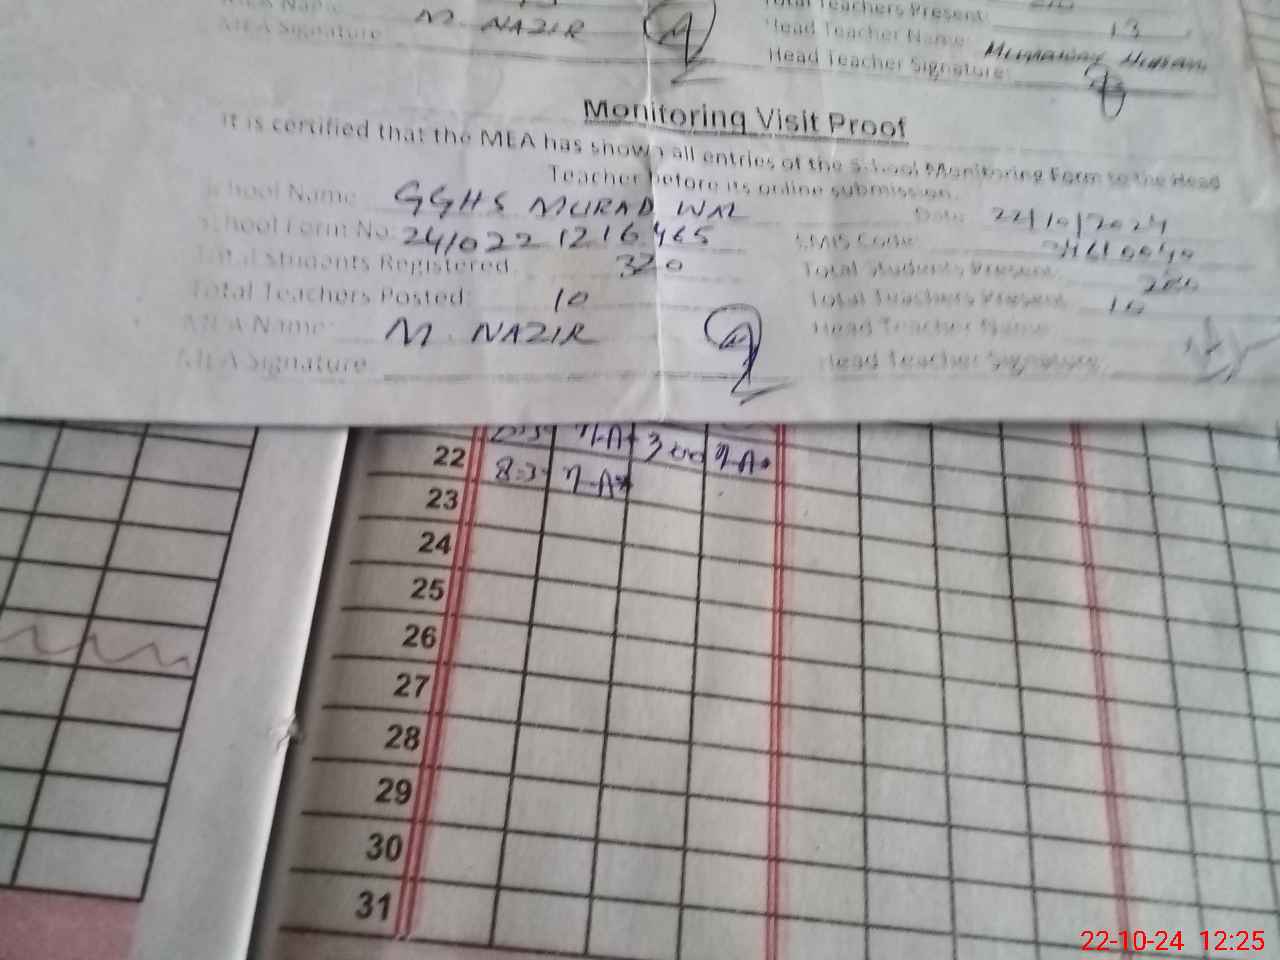 MEA Name: M. NAZIR
MEA Signature
Total Teachers Present: 13
Head Teacher Name:
Head Teacher Signature:
Monitoring Visit Proof
It is certified that the MEA has shown all entries of the School Monitoring Form to the Head
Teacher before its online submission.
School Name GGHS MURAD WAL Date 22/10/2024
School Form No: 241022 1216465 EMIS Code:
Total Students Registered: 320 Total Students Present:
Total Teachers Posted: 10 Total Teachers Present 10
MEA Name: M. NAZIR Head Teacher Name
MEA Signature Head Teacher Signature:
22
23
24
25
26
27
28
29
30
31
22-10-24 12:25